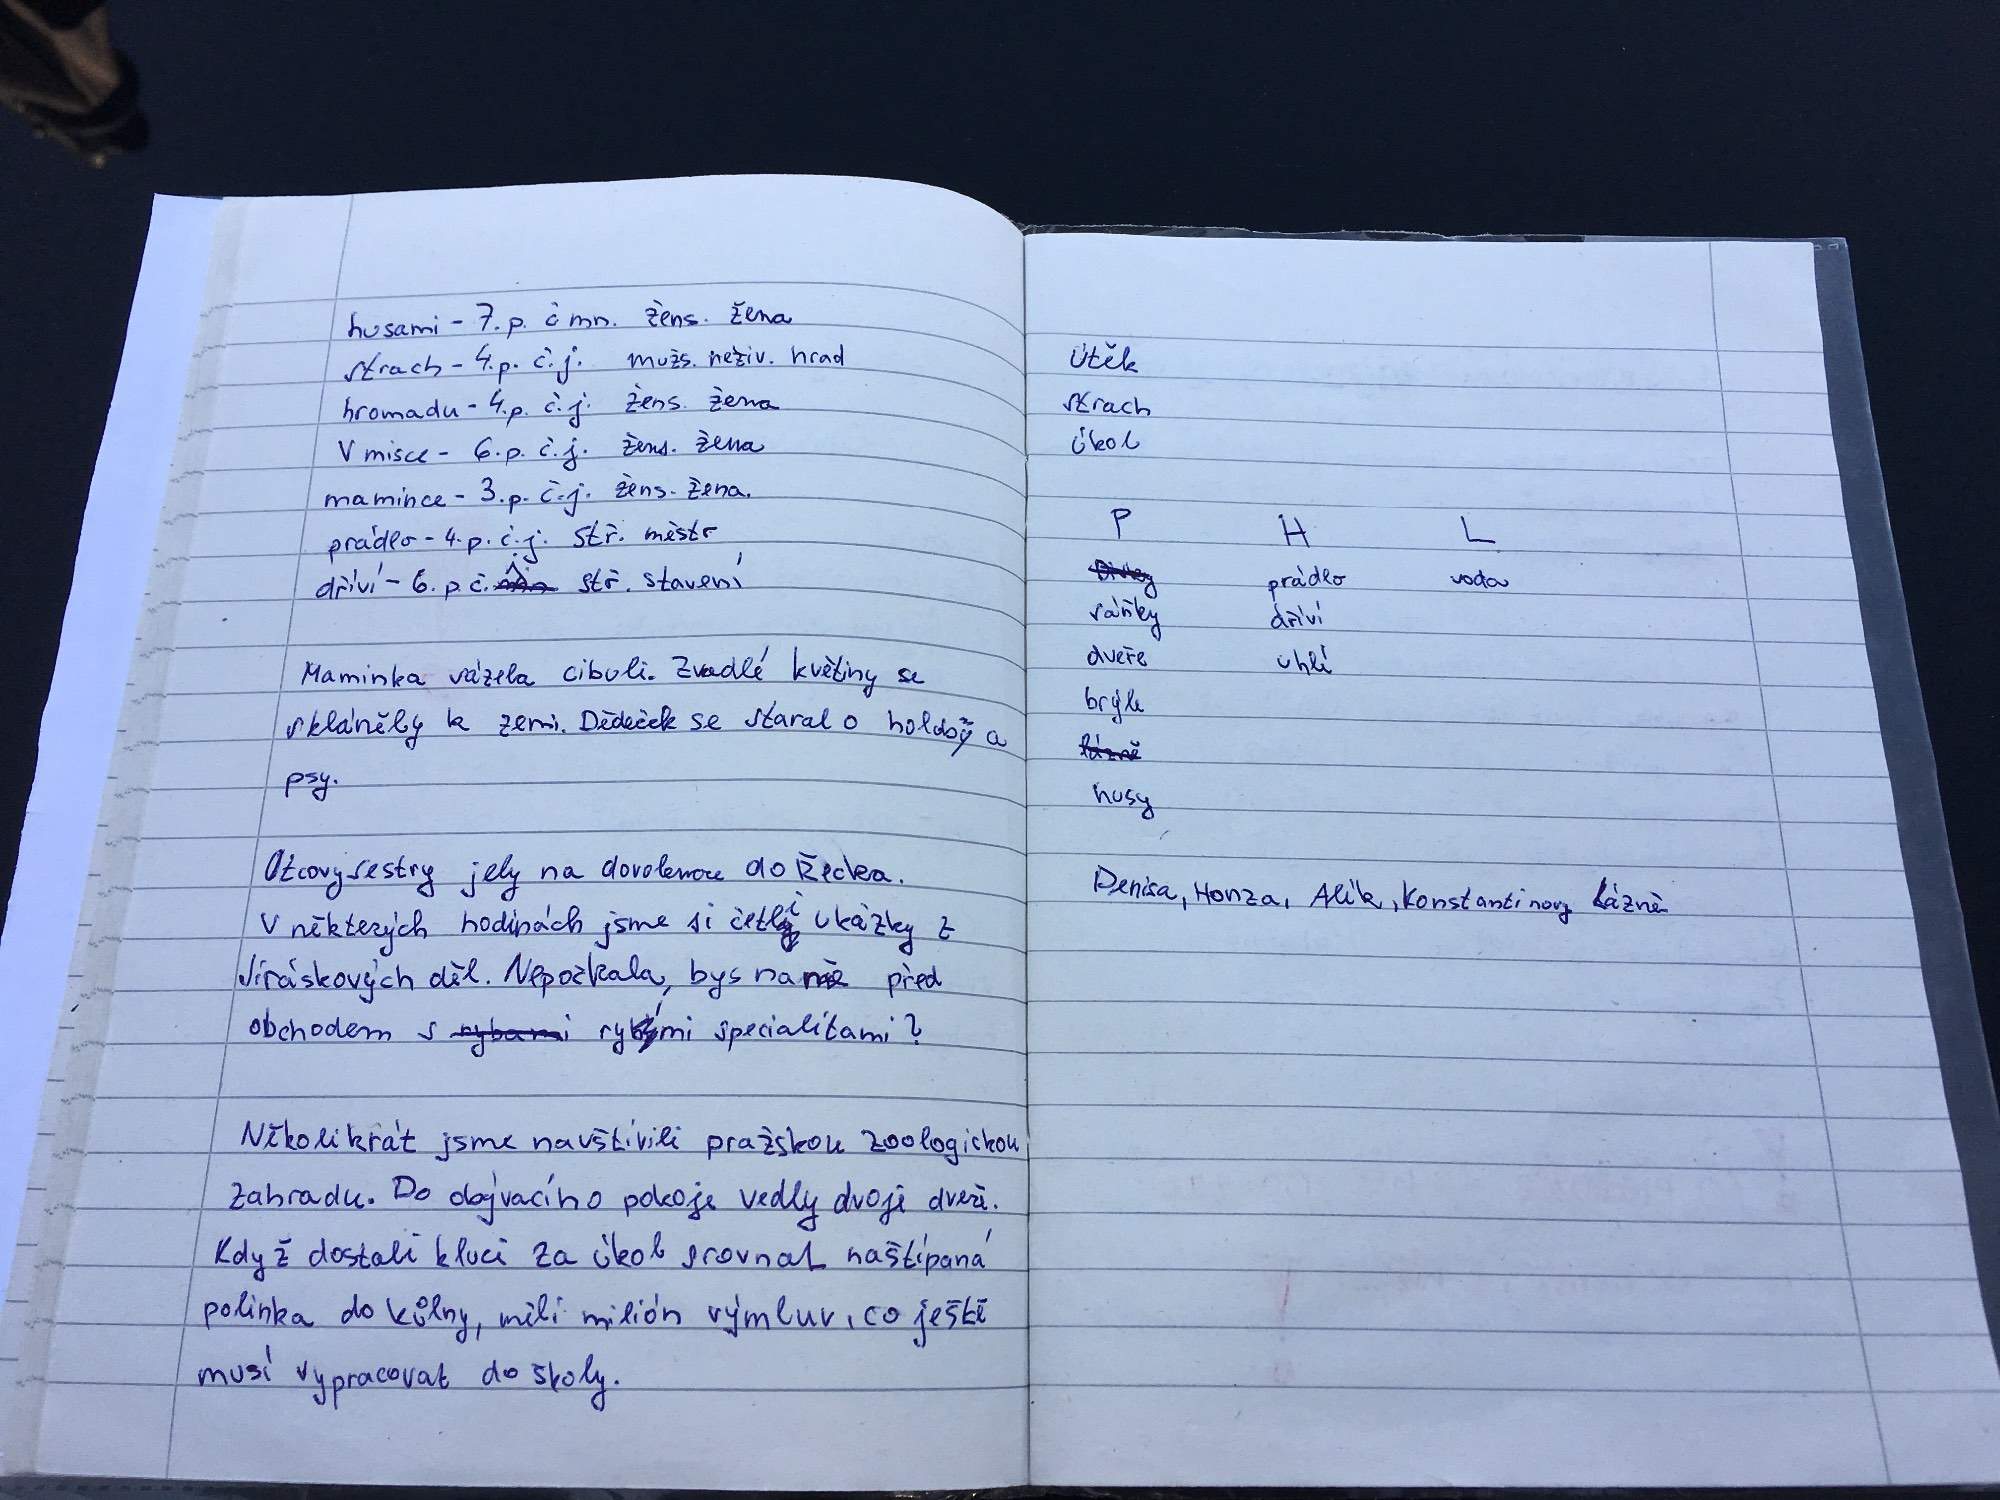 husami - 7. p. č mn. žens. žena
strach - 4. p. č. j. mužs. neživ. hrad
hromadu - 4. p. č. j. žens. žena
V misce - 6. p. č. j. žens. žena
mamince - 3. p. č. j. žens. žena.
prádlo - 4. p. č. j. stř. město
dříví - 6. p. č. j. stř. stavení
Maminka vázela cibuli. Zvadlé květiny se
skláněly k zemi. Dědeček se staral o holoby a
psy.
Otcovy sestry jely na dovolenou do Řecka.
V některých hodinách jsme si četli ukázky z
Jiráskových děl. Nepočkala, bys na mě před
obchodem s rybími specialitami?
Několikrát jsme navštívili pražskou zoologickou
zahradu. Do obývacího pokoje vedly dvoje dveře.
Když dostali kluci za úkol srovnat naštípaná
polínka do kůlny, měli milión výmluv, co ještě
musí vypracovat do školy.
útěk
strach
úkol
P H L
prádlo voda
sáňky dříví
dveře uhlí
brýle
lázně
husy
Denisa, Honza, Alík, Konstantinovy Lázně